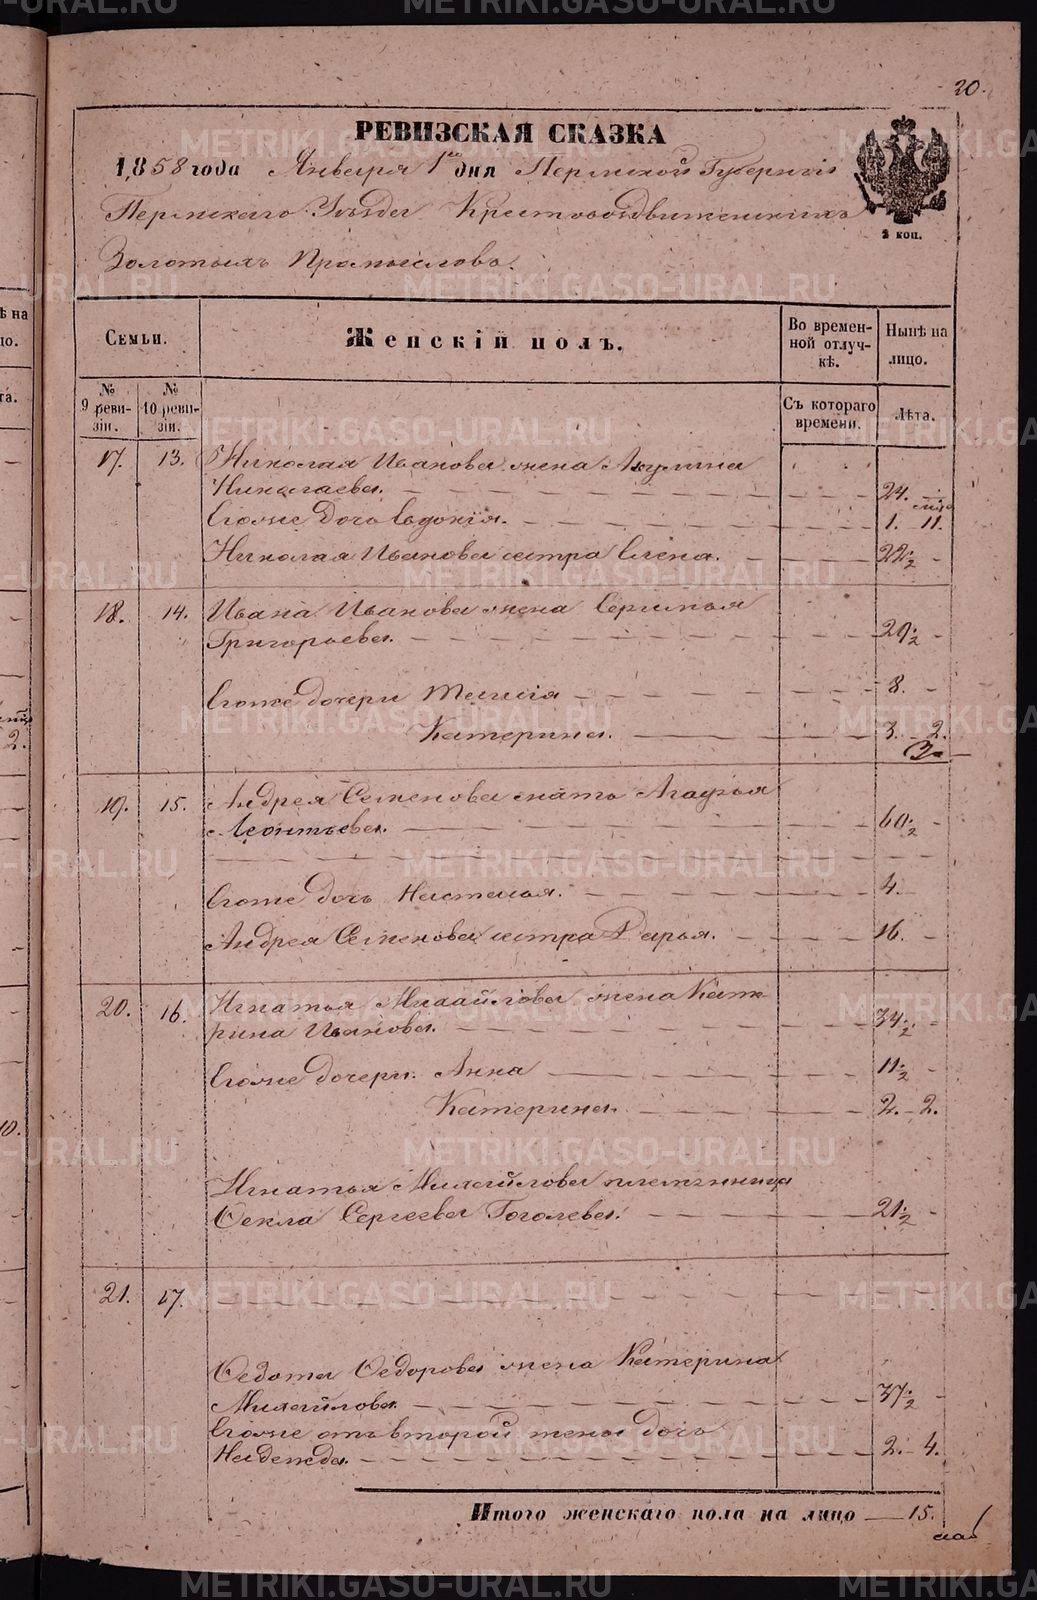 20.
РЕВИЗСКАЯ СКАЗКА
1858 года Января 1го дня Пермской Губернiи
Пермскаго Уѣзда Крестовоздвиженскихъ
Золотыхъ Промысловъ.
2 коп.
Семьи. Женскій полъ. Во времен-ной отлуч-кѣ. Нынѣ на лицо.
№ 9 реви-зіи. № 10 реви-зіи. Съ котораго времени. Лѣта.
17. 13. Николая Иванова жена Акулина
Николаева. 24.
Егоже дочь Евдокія. 1. 11.
Николая Иванова сестра Елена. 22 1/2
18. 14. Ивана Иванова жена
Григорьева. 29 1/2
Егоже дочери Таисія 8.
Катерина. 3. 2.
19. 15. Андрея Семенова мать Агафья
Леонтьева. 60 1/2
Егоже дочь Наталья. 4.
Андрея Семенова сестра Дарья. 16.
20. 16. Игнатья Михайлова жена Кате-
рина Иванова. 34 1/2
Егоже дочери. Анна 11 1/2
Катерина. 2. 2.
Игнатья Михайлова племянница
Ѳекла Сергеева Гоголева. 21 1/2
21. 17.
Ѳедота Ѳедорова жена Катерина
Михайлова. 37 1/2
Егоже отъ второй жены дочь
Надежда. 2. 4.
Итого женскаго пола на лицо 15.
METRIKI.GASO-URAL.RU